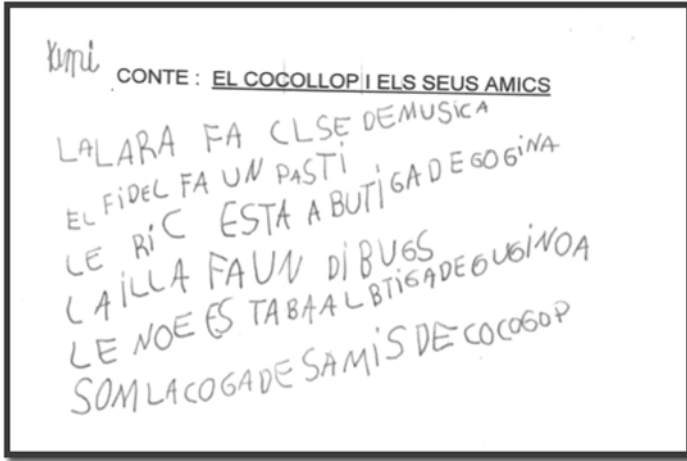 Ximi
CONTE : EL COCOLLOP I ELS SEUS AMICS
LALARA FA CLSE DEMUSICA
EL FIDEL FA UN PASTI
LE RIC ESTA A BUTIGADEGOGINA
LAILLA FAUN DIBUGS
LE NOE ES TABAALBTIGADEGUGINOA
SOMLACOGADESAMISDECOCOGOP